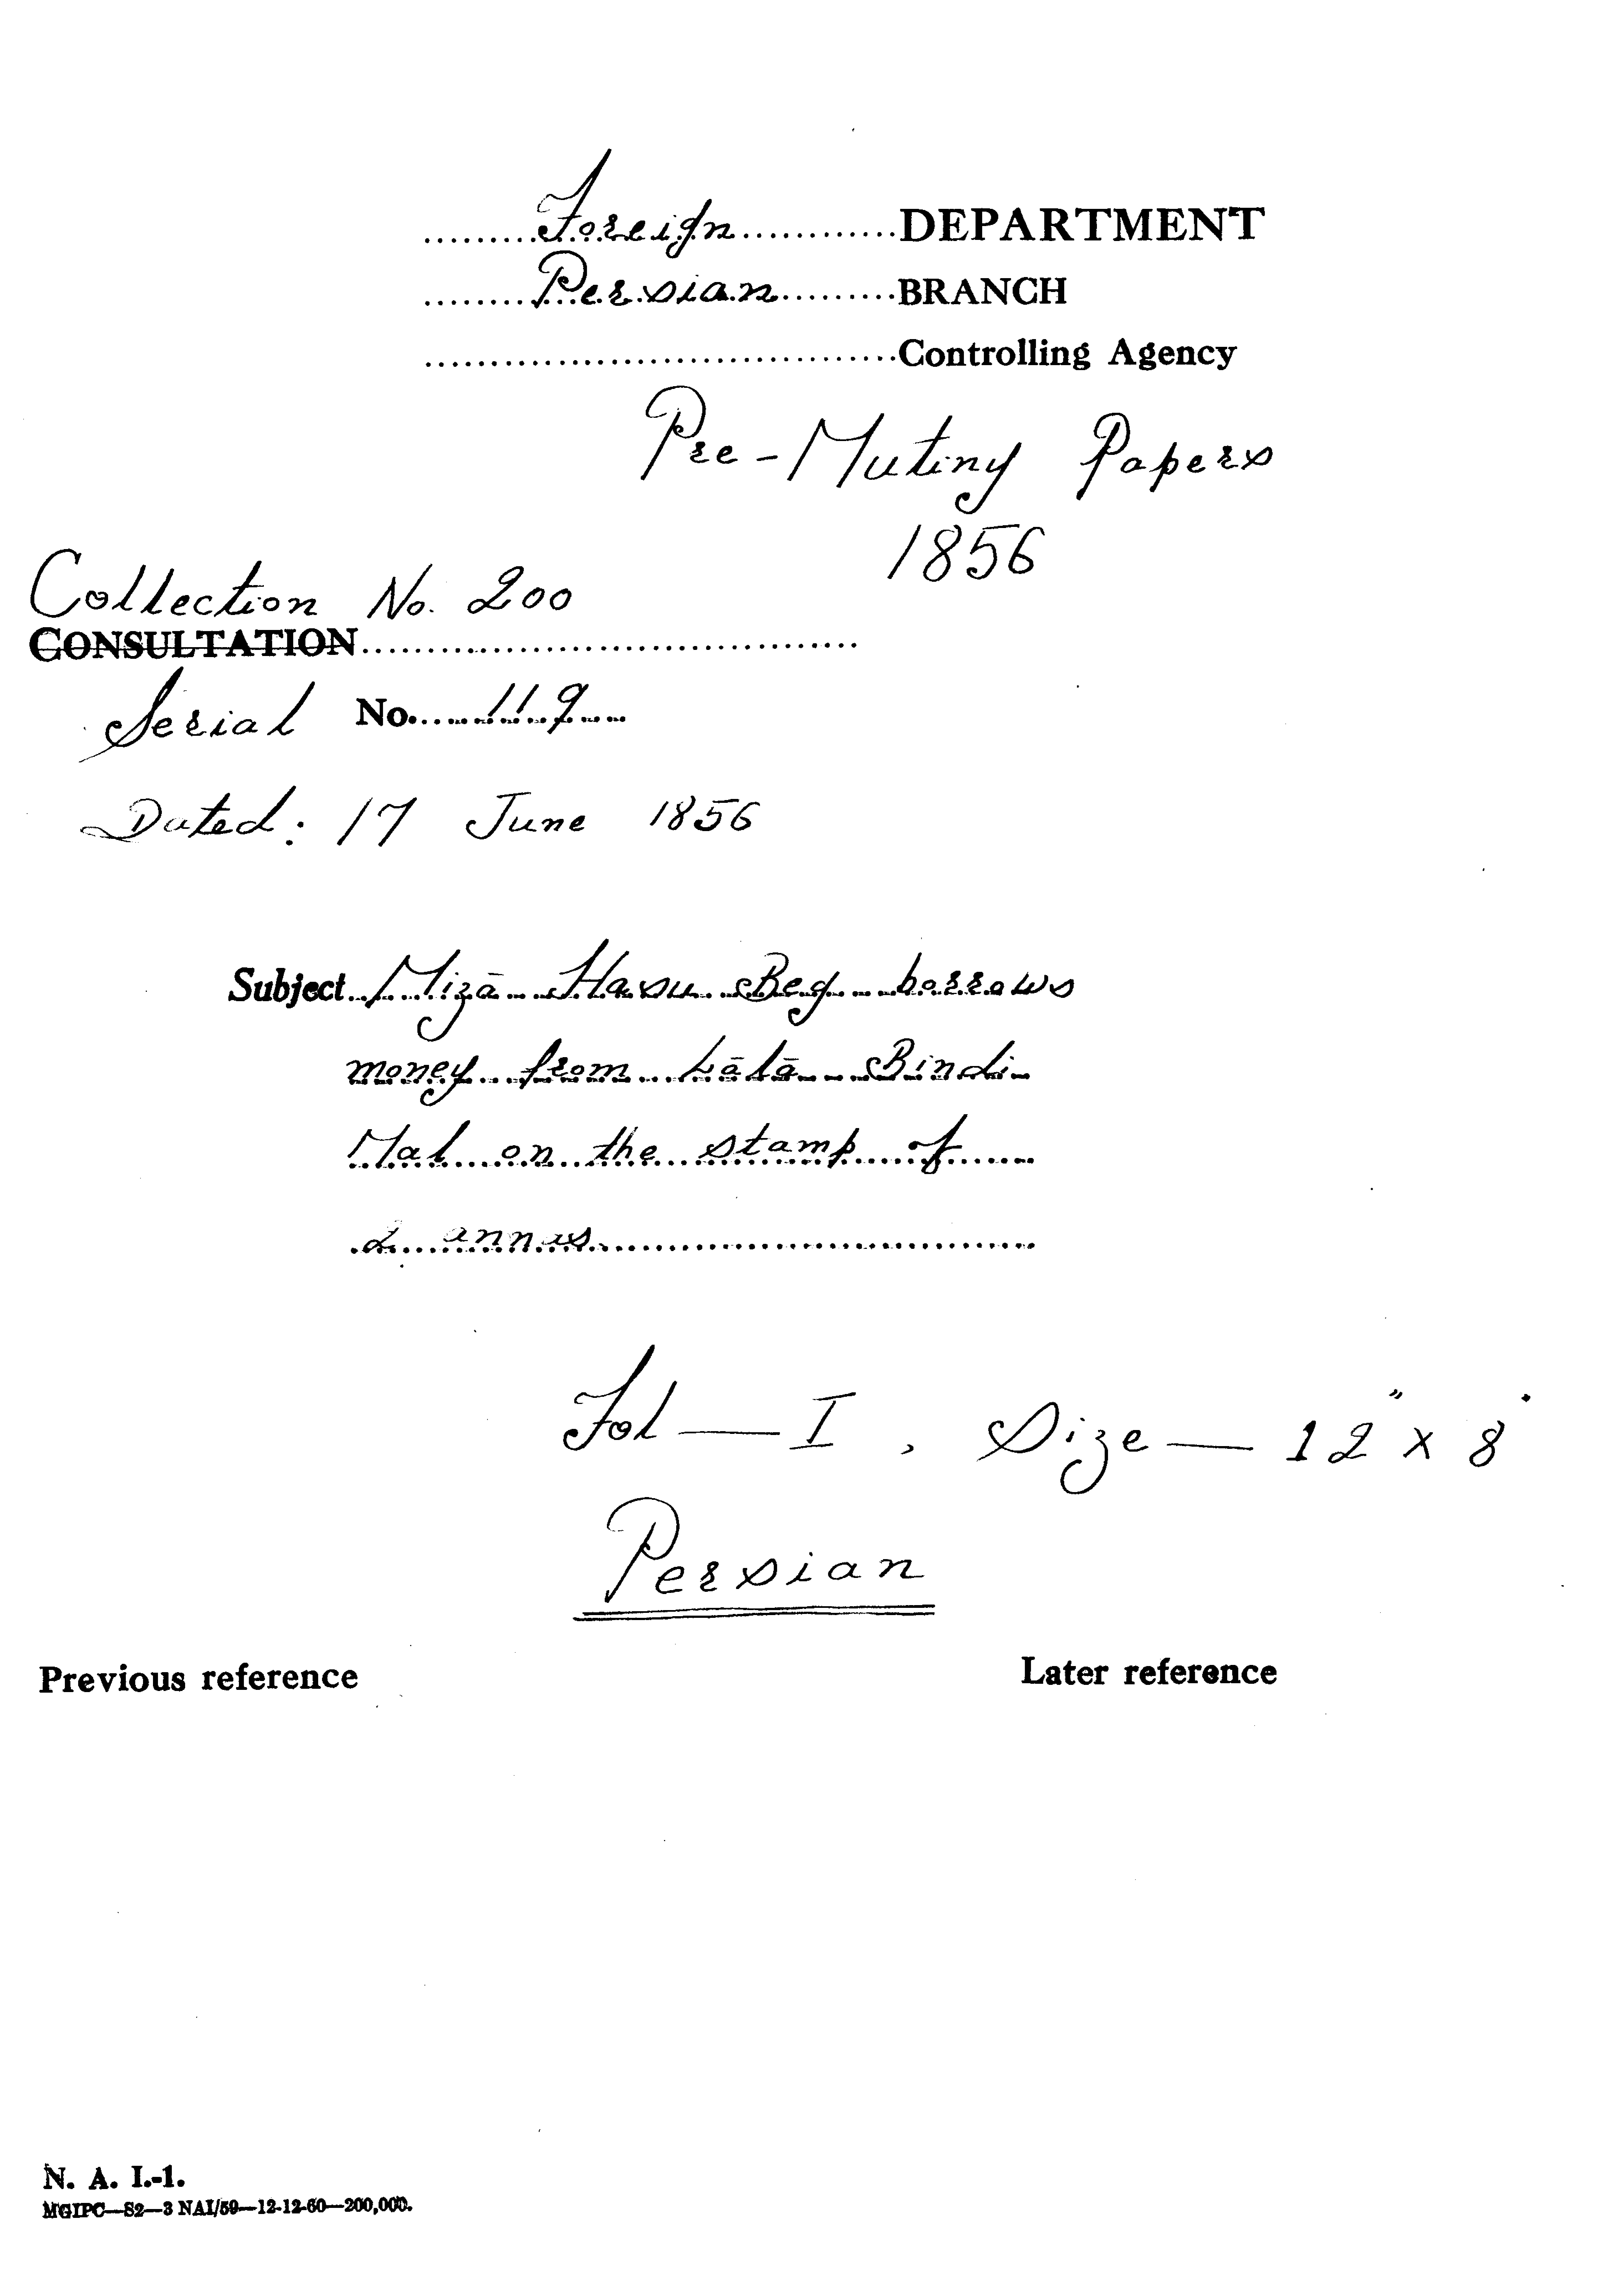 Foreign DEPARTMENT
Persian BRANCH
Controlling Agency
Pre-Mutiny Papers
1856
Collection No. 200
CONSULTATION
Serial No. 119
Dated: 17 June 1856
Subject Mizā Hasu Beg borrows
money from Lālā Bindi
Mal on the stamp of
2 annas
Fol — I, Size — 12" x 8"
Persian
Previous reference
Later reference
N. A. I.-1.
MGIPC—S2—3 NAI/59—12-12-60—200,000.